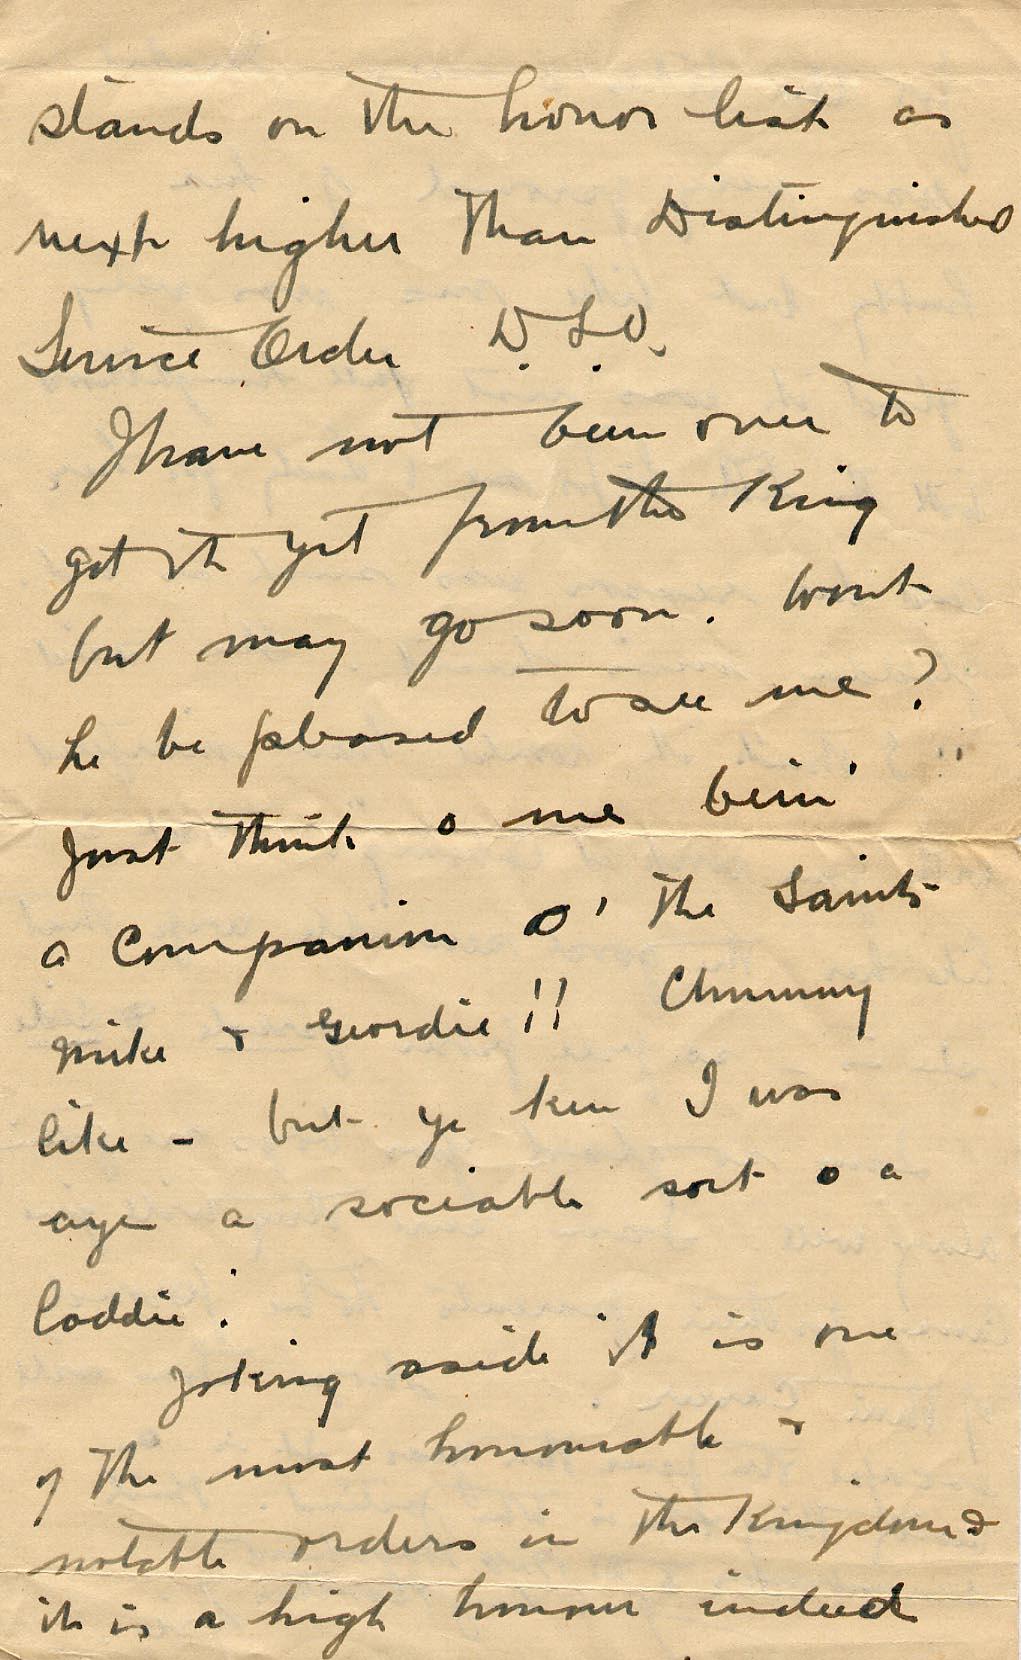 stands on the honor list as
next higher than Distinguished
Service Order D.S.O.
I have not been over to
get it yet from the King
but may go soon. Wont
he be pleased to see me?
Just think o me bein'
a Companion O' the Saints
Mike & Geordie!! Chummy
like - but ye ken I was
aye a sociable sort o a
laddie!
Joking aside it is one
of the most honourable &
notable orders in the Kingdom &
it is a high honour indeed